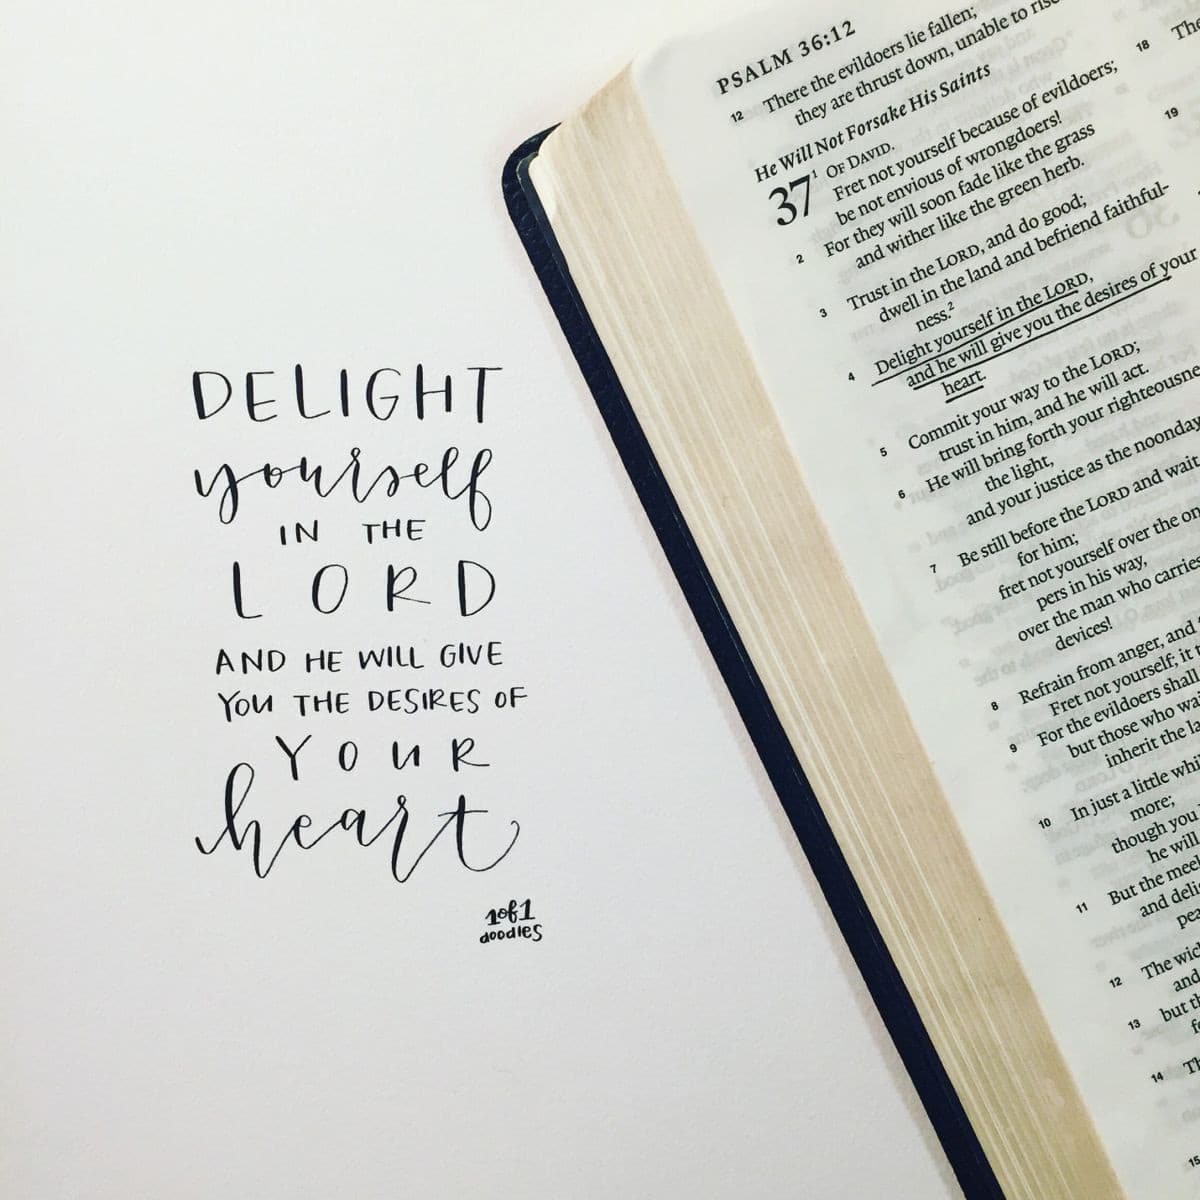 DELIGHT
yourself
IN THE
LORD
AND HE WILL GIVE
YOU THE DESIRES OF
YOUR
heart
1of1
doodles
PSALM 36:12
12 There the evildoers lie fallen;
they are thrust down, unable to rise
He Will Not Forsake His Saints
37 1 OF DAVID.
Fret not yourself because of evildoers;
be not envious of wrongdoers!
2 For they will soon fade like the grass
and wither like the green herb.
3 Trust in the LORD, and do good;
dwell in the land and befriend faithful-
ness.2
4 Delight yourself in the LORD,
and he will give you the desires of your
heart.
5 Commit your way to the LORD;
trust in him, and he will act.
6 He will bring forth your righteousne
the light,
and your justice as the noonday
7 Be still before the LORD and wait
for him;
fret not yourself over the on
pers in his way,
over the man who carries
devices!
8 Refrain from anger, and
Fret not yourself; it
9 For the evildoers shall
but those who wa
inherit the la
10 In just a little whi
more;
though you
he will
11 But the meek
and deli
pea
12 The wic
and
13 but th
fo
14 Th
15
18 The
19